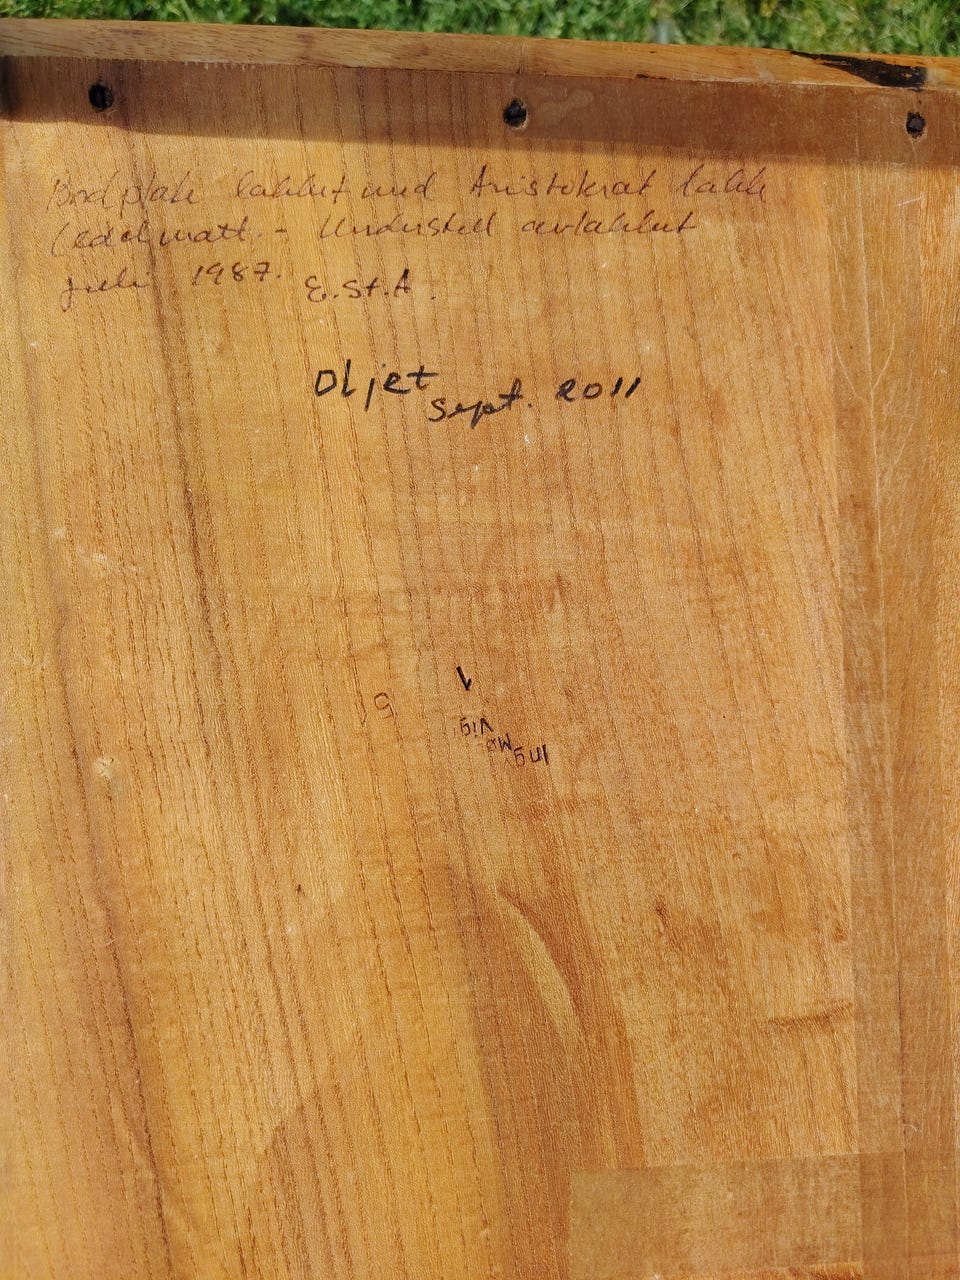 Bordplate lakkert med Aristokrat lakk
(edelmatt. - Understell avlakkert
juli 1987. E.St.A.
Oljet
sept. 2011
1
5
Vig
Mø
Ing